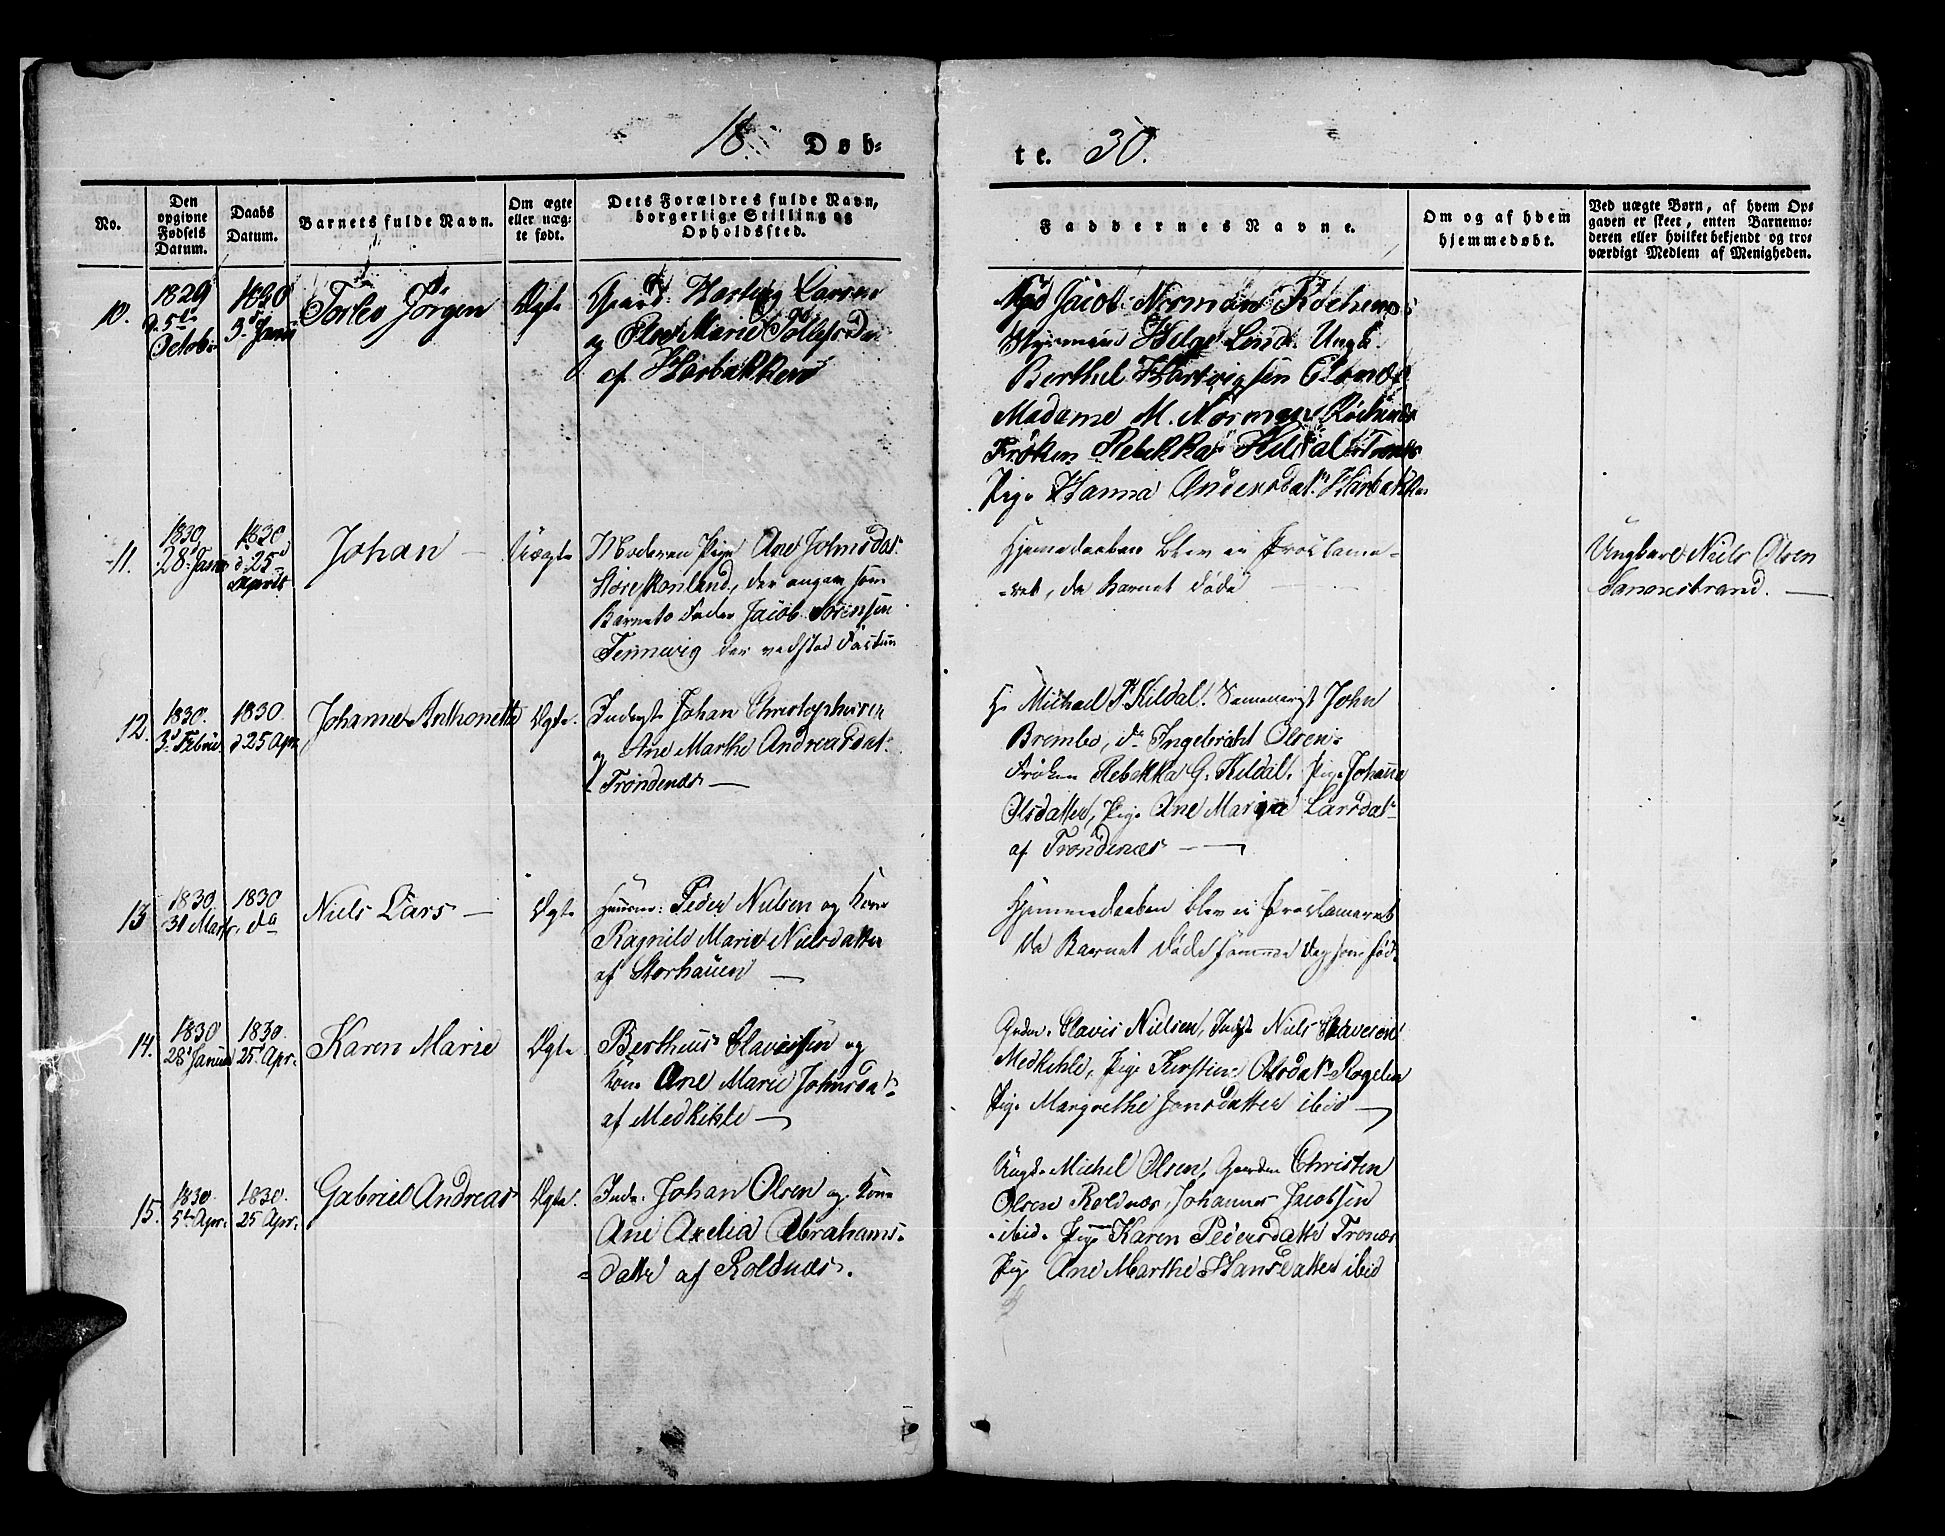 18 Døb-
te. 30.
No.
Den opgivne Fødsels Datum.
Daabs Datum.
Barnets fulde Navn.
Om ægte eller uæg-te født.
Dets Forældres fulde Navn, borgerlige Stilling og Opholdssted.
Faddernes Navne.
Om og af hvem hjemmedøbt.
Ved uægte Børn, af hvem Op-gaven er skeet, enten Barnemo-deren eller hvilket bekjendt og tro-værdigt Medlem af Menigheden.
10.
1829
d. 5te
Octobr
1830
3d Janu
Torlev Jørgen
Ægte
Gaard: Hartvig Larsen
og Marie
af Harbakken
Jacob Norman Røckenes
Helge Lind. Ungk.
Berthel Hartvigsen
Madame M. Norman Røckenes
Frøken Rebekka Kildal
Pige Hanna Andersdat. Harbakken
11.
1830
28 Janu
1830
d. 25
Aprili
Johan —
Uægte
Moderen Pige Ane Johnsdat.
der angav som
Barnets Fader Jacob Sørensen
Tennevig der vedstod
Hjemmedaaben blev ei Proclame-
-ret, da Barnet døde
Ungkarl Niels Olsen
Sannestrand. —
12.
1830.
3d Febru
1830.
d 25 Apr.
Johanne Anthonette
Ægte.
Inderst Johan Christophersen
og Ane Marthe Andreasdat.
Trondenæs —
Hr Michael P. Kildal. John
Brembo, do Ingebricht Olsen.
Frøken Rebekka G. Kildal. Pige Johanna
Olsdatter, Pige Ane Maria Larsdat.
af Trondenæs —
13
1830.
31 Marts.
1830
da
Niels Lars —
Ægte
Huusm: Peder Nielsen og Kone
Ragnild Marie Nielsdatter
af Storhauen —
Hjemmedaaben blev ei Proclameret
da Barnet døde samme dag som fød.
14.
1830
28d Januar
1830.
25. Apr.
Karen Marie
Ægte
Bertheus Clavesen og
Kone Ane Marie Johnsdat.
af Medkihle —
Gaardm. Clavis Nielsen, Niels Clavesen
Medkihle, Pige Kirstine Olsdat.
Pige Margrethe Jonsdatter ibid —
15.
1830.
5te Apr.
1830.
25 Apr.
Gabriel Andreas
Ægte.
Inds. Johan Olsen og Kone
Ane Axelia Abrahams-
datter af Roldnæs.
Ungk. Michel Olsen, Christen
Olsen Roldnæs, Johannes Jacobsen
ibid. Pige Karen Pedersdatter Tronæs
Pige Ane Marthe Hansdatter ibid